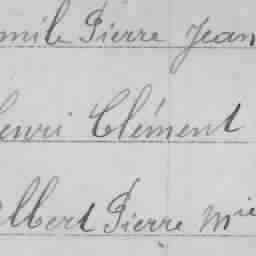 mile Pierre Jean
enri Clément
lbert Pierre Mie